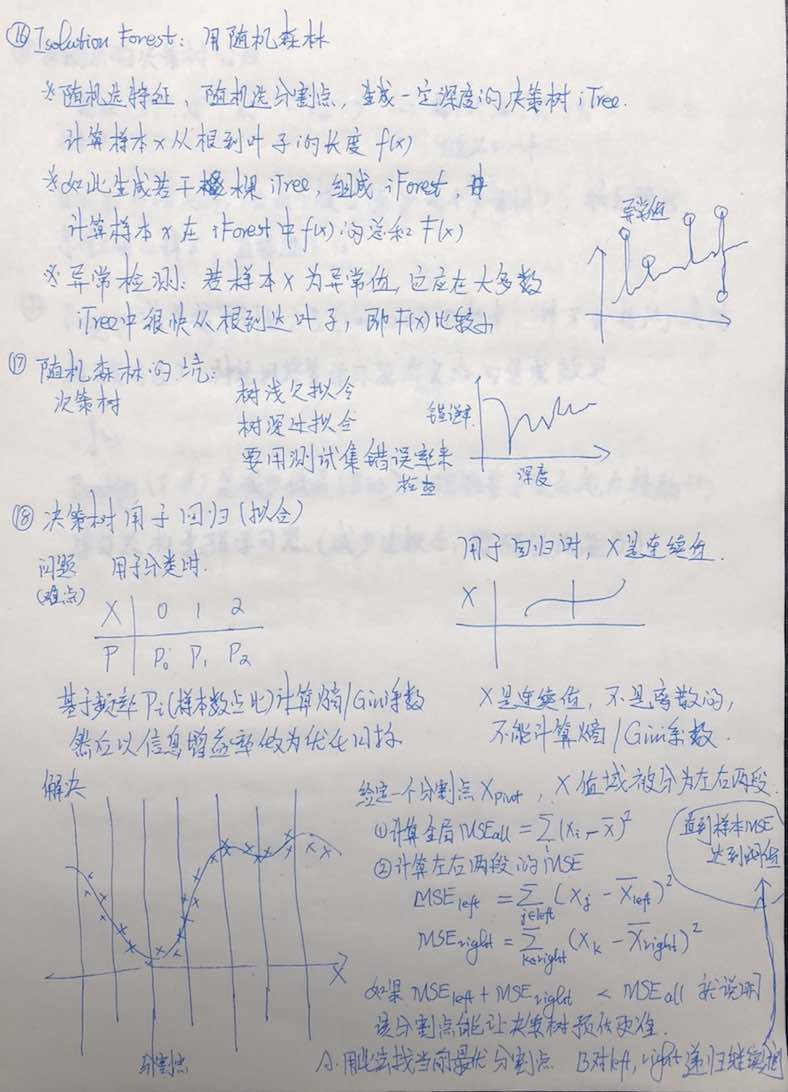 ⑯ Isolution Forest: 用随机森林
※随机选特征，随机选分割点，生成一定深度的决策树 iTree.
计算样本x从根到叶子的长度 f(x)
※如此生成若干棵 iTree, 组成 iForest,
计算样本x在 iForest 中 f(x) 的总和 F(x)
※异常检测: 若样本X为异常值, 它应在大多数
iTree中很快从根到达叶子, 即F(x)比较小
异常值
⑰ 随机森林的坑:
决策树
树浅欠拟合
树深过拟合
要用测试集错误率来
检查
错误率
深度
⑱ 决策树用于回归(拟合)
问题
(难点)
用于分类时.
X 0 1 2
P P₀ P₁ P₂
用于回归时, X是连续值.
X
基于频率 Pi(样本数占比)计算熵/Gini系数
然后以信息增益率做为优化目标
X是连续值, 不是离散的,
不能计算熵/Gini系数.
解决
X
分割点
给定一个分割点 Xpivot, X值域被分为左右两段.
①计算全局MSEall = ∑(xi - x̄)²
②计算左右两段的MSE
MSEleft = ∑j∈left (Xj - X̄left)²
MSEright = ∑k∈right (Xk - X̄right)²
如果 MSEleft + MSEright < MSEall 就说明
该分割点能让决策树预估更准.
A.用此法找当前最优分割点 B对left, right递归继续
直到样本MSE
达到阈值